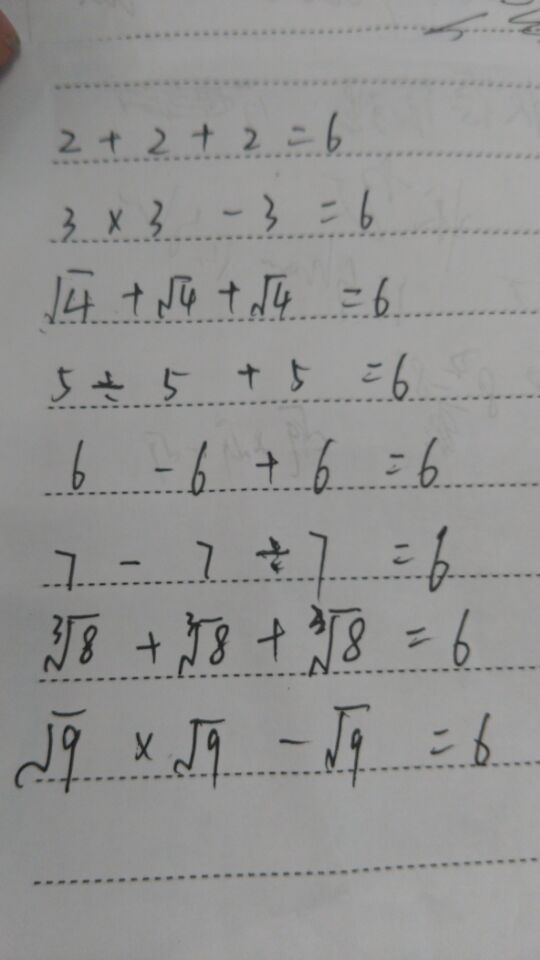 2 + 2 + 2 = 6
3 × 3 - 3 = 6
√4 + √4 + √4 = 6
5 ÷ 5 + 5 = 6
6 - 6 + 6 = 6
7 - 7 ÷ 7 = 6
∛8 + ∛8 + ∛8 = 6
√9 × √9 - √9 = 6